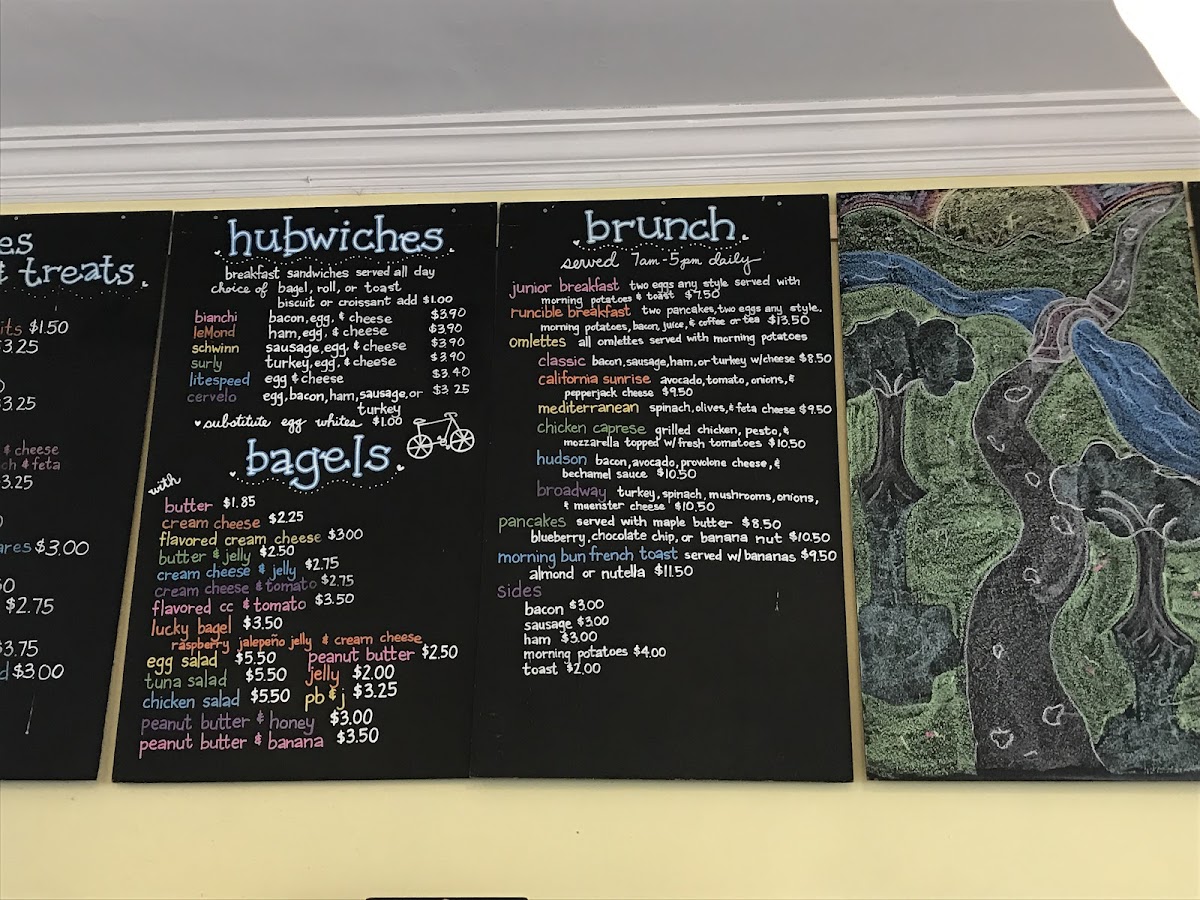 es
& treats
its $1.50
$3.25
3.25
& cheese
ch & feta
3.25
ares $3.00
$2.75
$3.75
d $3.00
hubwiches
breakfast sandwiches served all day
choice of bagel, roll, or toast
biscuit or croissant add $1.00
bianchi bacon, egg, & cheese $3.90
leMond ham, egg, & cheese $3.90
schwinn sausage, egg, & cheese $3.90
surly turkey, egg, & cheese $3.90
litespeed egg & cheese $3.40
cervelo egg, bacon, ham, sausage, or $3.25
turkey
substitute egg whites $1.00
bagels
with
butter $1.85
cream cheese $2.25
flavored cream cheese $3.00
butter & jelly $2.50
cream cheese & jelly $2.75
cream cheese & tomato $2.75
flavored cc & tomato $3.50
lucky bagel $3.50
raspberry jalepeño jelly & cream cheese
egg salad $5.50 peanut butter $2.50
tuna salad $5.50 jelly $2.00
chicken salad $5.50 pb & j $3.25
peanut butter & honey $3.00
peanut butter & banana $3.50
brunch
served 7am-5pm daily
junior breakfast two eggs any style served with
morning potatoes & toast $7.50
runcible breakfast two pancakes, two eggs any style,
morning potatoes, bacon, juice, & coffee or tea $13.50
omlettes all omlettes served with morning potatoes
classic bacon, sausage, ham, or turkey w/cheese $8.50
california sunrise avocado, tomato, onions, &
pepperjack cheese $9.50
mediterranean spinach, olives, & feta cheese $9.50
chicken caprese grilled chicken, pesto, &
mozzarella topped w/fresh tomatoes $10.50
hudson bacon, avocado, provolone cheese, &
bechamel sauce $10.50
broadway turkey, spinach, mushrooms, onions,
& muenster cheese $10.50
pancakes served with maple butter $8.50
blueberry, chocolate chip, or banana nut $10.50
morning bun french toast served w/bananas $9.50
almond or nutella $11.50
sides
bacon $3.00
sausage $3.00
ham $3.00
morning potatoes $4.00
toast $2.00